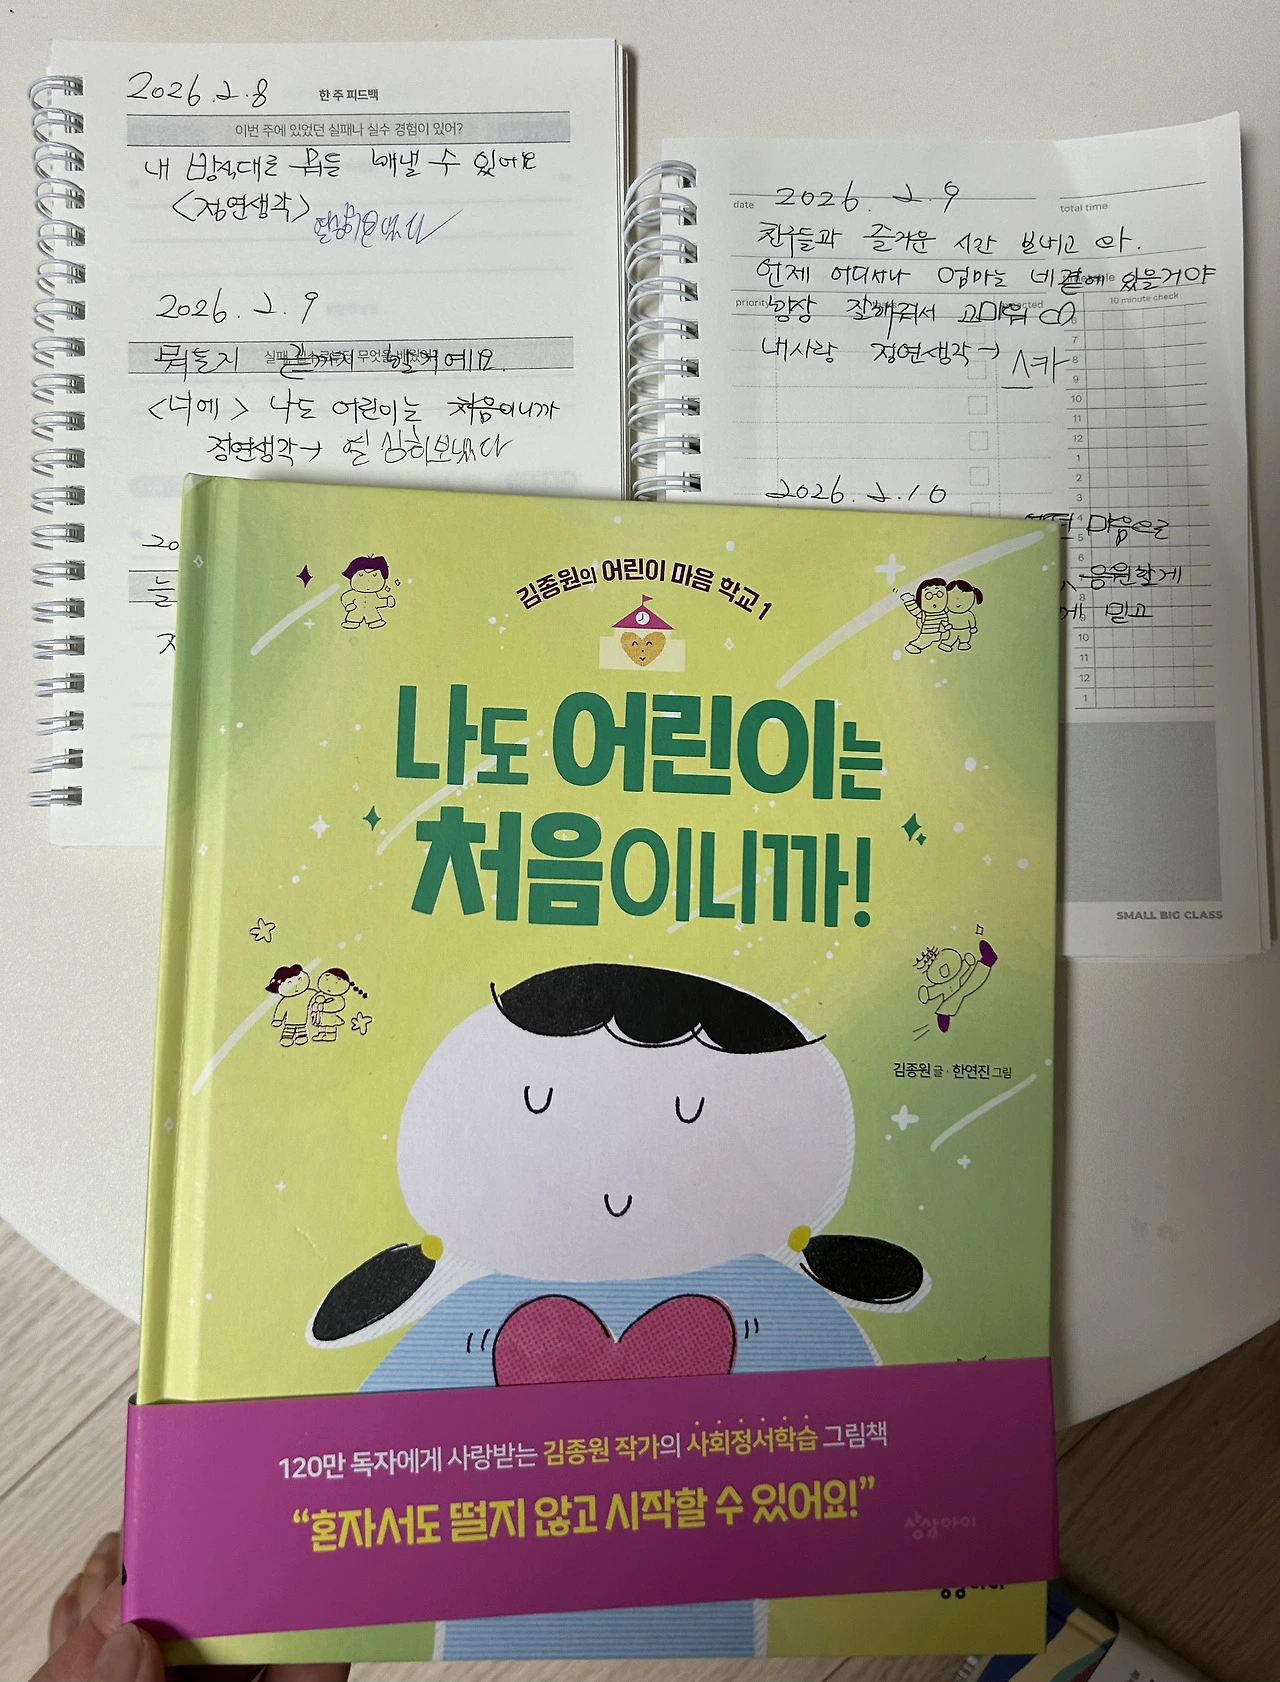 2026.2.8 한 주 피드백
이번 주에 있었던 실패나 실수 경험이 있어?
내 방식대로 뭐든 해낼 수 있어요
<정연생각>
열심히 보냈다
2026.2.9
뭐든지 끝까지 할거예요.
<너에> 나도 어린이는 처음이니까
정연생각→ 열심히보냈다
20
늘
date 2026.2.9 total time
친구들과 즐거운 시간 보내고 와.
언제 어디서나 엄마는 네곁에 있을거야
priority 10 minute check
항상 잘해줘서 고마워
내사랑 정연생각→ 스카
6
8
9
10
11
12
1
2
3
4
5
6
8
9
10
11
12
1
2026.2.10
마음으로
응원할게
믿고
SMALL BIG CLASS
김종원의 어린이 마음 학교 1
나도 어린이는
처음이니까!
김종원 글·한연진 그림
120만 독자에게 사랑받는 김종원 작가의 사회정서학습 그림책
“혼자서도 떨지 않고 시작할 수 있어요!”
상상아이